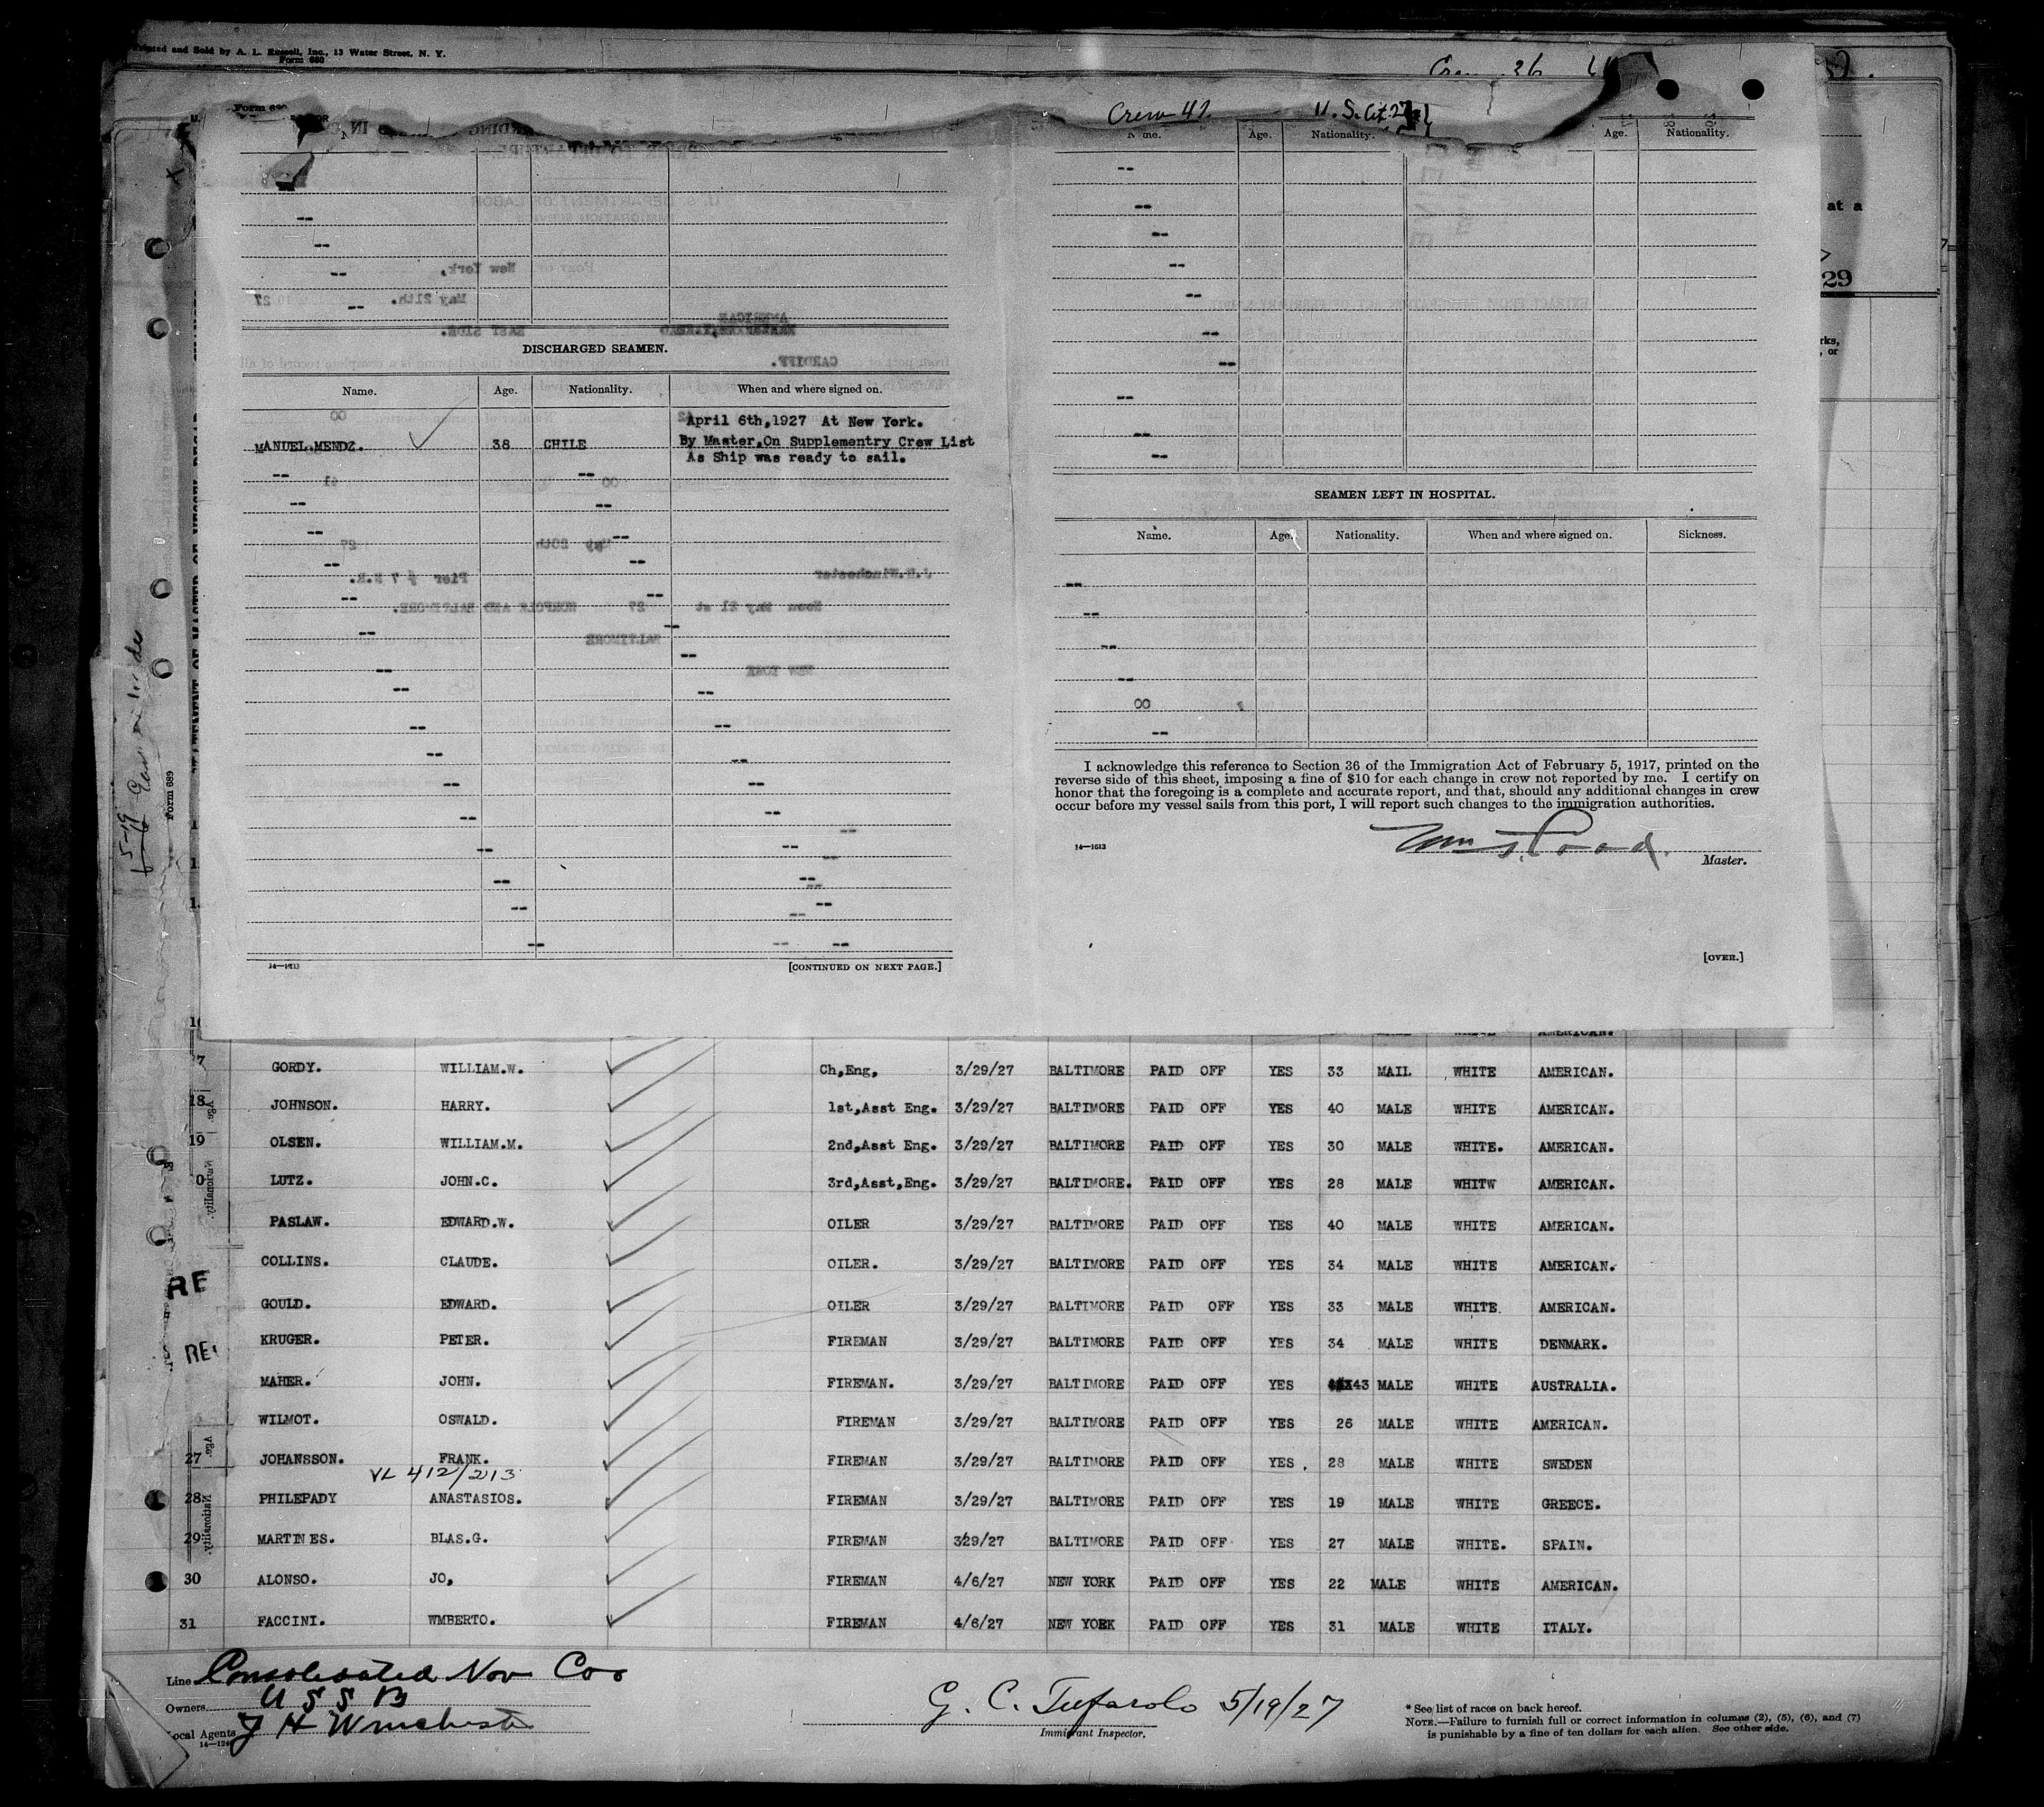 Printed and Sold by A. L. Russell, Inc., 13 Water Street, N. Y.
Form 680
Crew 26
Crew 41
U. S. Cit. 27
Age. Nationality. Age. Nationality.
at a
29
rks,
, or
DISCHARGED SEAMEN.
Name. Age. Nationality. When and where signed on.
April 6th,1927 At New York.
MANUEL.MENDZ. 38 CHILE By Master,On Supplementry Crew List
As Ship was ready to sail.
14—1613
[CONTINUED ON NEXT PAGE.]
SEAMEN LEFT IN HOSPITAL.
Name. Age. Nationality. When and where signed on. Sickness.
00
I acknowledge this reference to Section 36 of the Immigration Act of February 5, 1917, printed on the
reverse side of this sheet, imposing a fine of $10 for each change in crew not reported by me. I certify on
honor that the foregoing is a complete and accurate report, and that, should any additional changes in crew
occur before my vessel sails from this port, I will report such changes to the immigration authorities.
14—1613
Master.
[OVER.]
Form 689
AMERICAN.
7 GORDY. WILLIAM.W. Ch,Eng, 3/29/27 BALTIMORE PAID OFF YES 33 MAIL WHITE AMERICAN.
18 JOHNSON. HARRY. 1st,Asst Eng. 3/29/27 BALTIMORE PAID OFF YES 40 MALE WHITE AMERICAN.
19 OLSEN. WILLIAM.M. 2nd,Asst Eng. 3/29/27 BALTIMORE PAID OFF YES 30 MALE WHITE. AMERICAN.
0 LUTZ. JOHN.C. 3rd,Asst,Eng. 3/29/27 BALTIMORE. PAID OFF YES 28 MALE WHITW AMERICAN.
PASLAW. EDWARD.W. OILER 3/29/27 BALTIMORE PAID OFF YES 40 MALE WHITE AMERICAN.
COLLINS. CLAUDE. OILER. 3/29/27 BALTIMORE PAID OFF YES 34 MALE WHITE AMERICAN.
GOULD. EDWARD. OILER 3/29/27 BALTIMORE PAID OFF YES 33 MALE WHITE. AMERICAN.
KRUGER. PETER. FIREMAN 3/29/27 BALTIMORE PAID OFF YES 34 MALE WHITE DENMARK.
MAHER. JOHN. FIREMAN. 3/29/27 BALTIMORE PAID OFF YES 43 MALE WHITE AUSTRALIA.
WILMOT. OSWALD. FIREMAN 3/29/27 BALTIMORE PAID OFF YES 26 MALE WHITE AMERICAN.
27 JOHANSSON. FRANK. FIREMAN 3/29/27 BALTIMORE PAID OFF YES. 28 MALE WHITE SWEDEN
VL 412/213
28 PHILEPADY ANASTASIOS. FIREMAN 3/29/27 BALTIMORE PAID OFF YES 19 MALE WHITE GREECE.
29 MARTINES. BLAS.G. FIREMAN 3/29/27 BALTIMORE PAID OFF YES 27 MALE WHITE. SPAIN.
30 ALONSO. JO, FIREMAN 4/6/27 NEW YORK PAID OFF YES 22 MALE WHITE AMERICAN.
31 FACCINI. WMBERTO. FIREMAN 4/6/27 NEW YORK PAID OFF YES 31 MALE WHITE ITALY.
RE
RE
Line Consolidated Nav Co.
Owners U S S B
Local Agents J H Winchester
G. C. Tufarolo 5/19/27
Immigrant Inspector.
* See list of races on back hereof.
NOTE.—Failure to furnish full or correct information in columns (2), (5), (6), and (7)
is punishable by a fine of ten dollars for each alien. See other side.